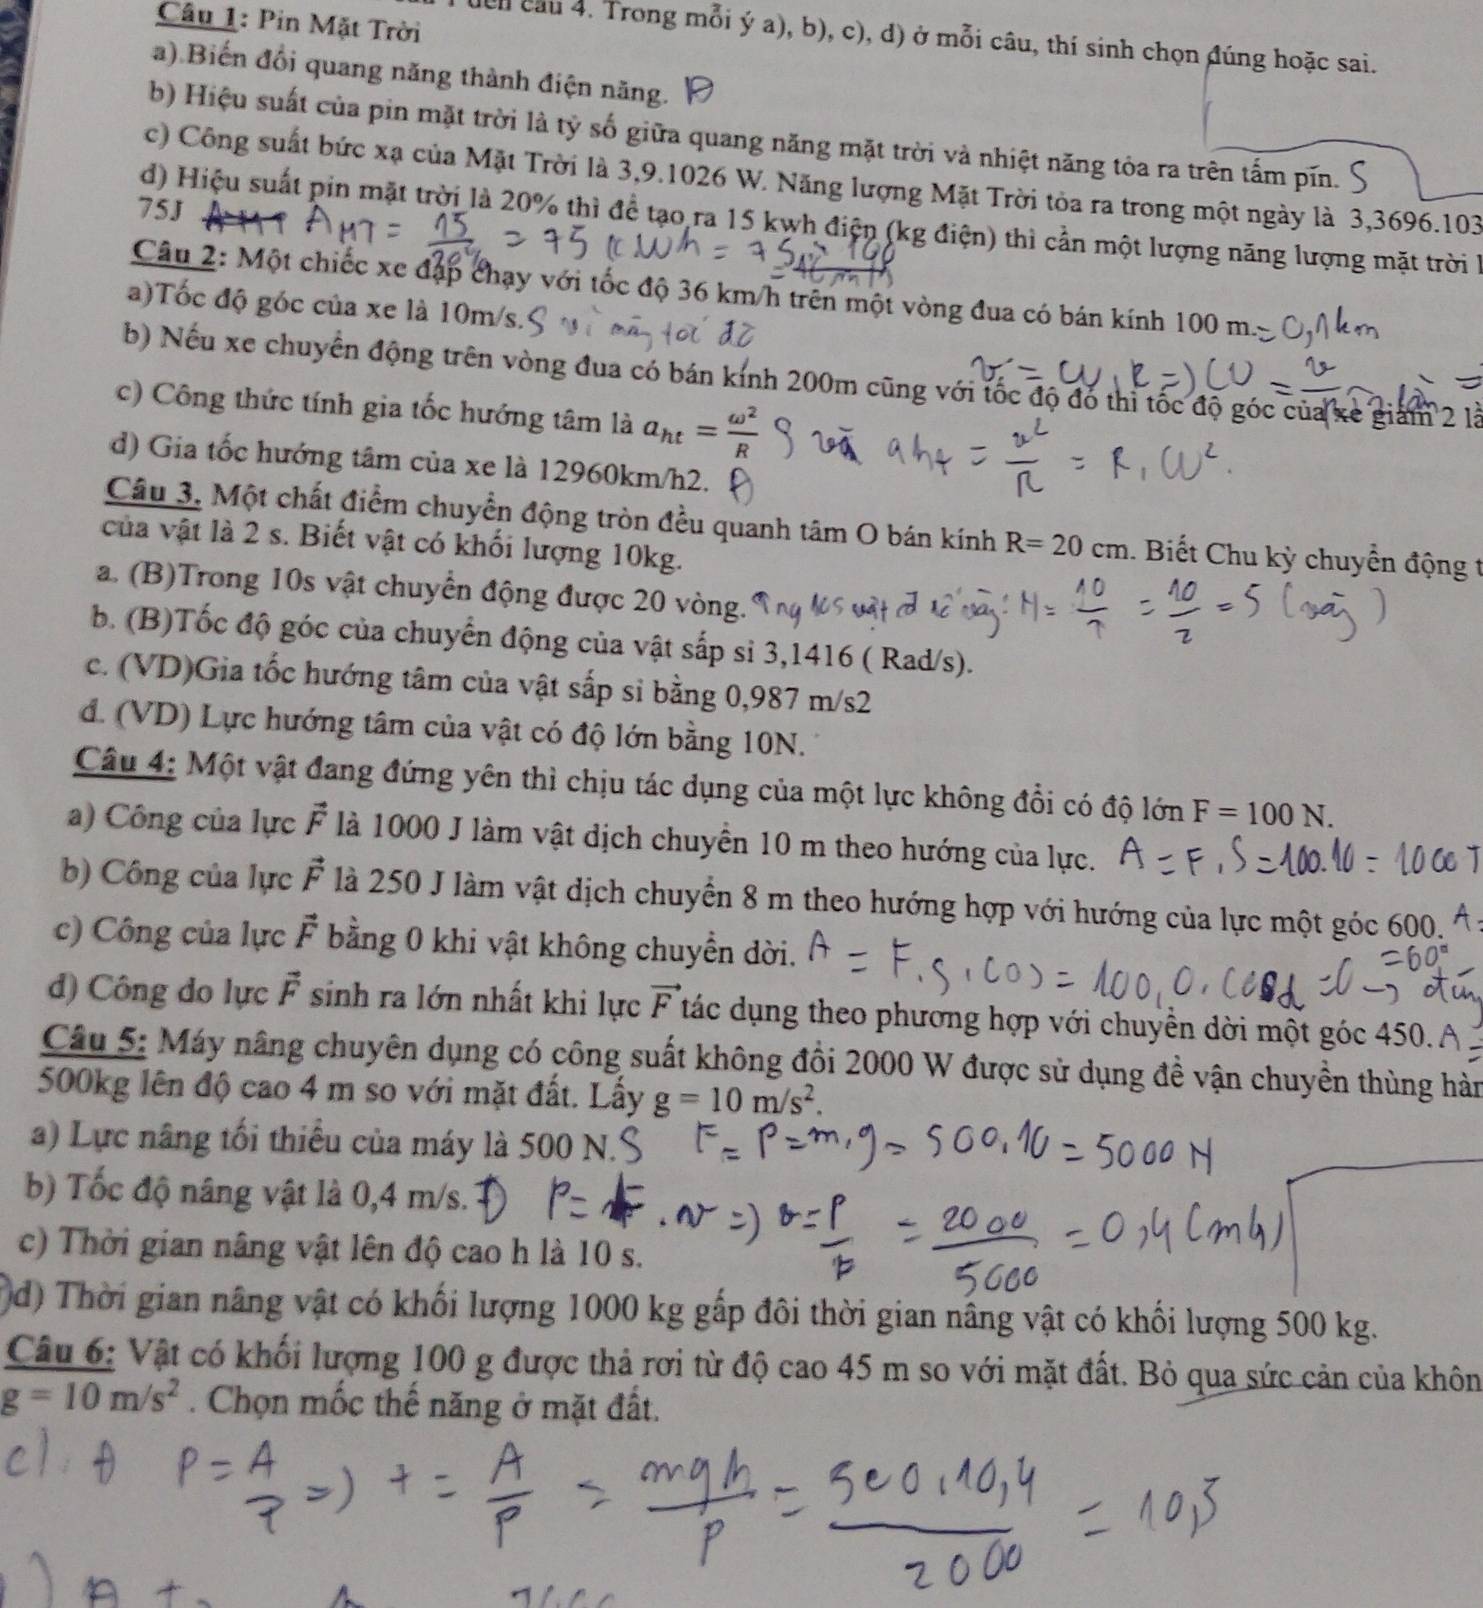 đến câu 4. Trong mỗi ý a), b), c), d) ở mỗi câu, thí sinh chọn đúng hoặc sai.
Câu 1: Pin Mặt Trời
a).Biến đổi quang năng thành điện năng. Đ
b) Hiệu suất của pin mặt trời là tỷ số giữa quang năng mặt trời và nhiệt năng tỏa ra trên tấm pin. S
c) Công suất bức xạ của Mặt Trời là 3,9.1026 W. Năng lượng Mặt Trời tỏa ra trong một ngày là 3,3696.103
d) Hiệu suất pin mặt trời là 20% thì để tạo ra 15 kwh điện (kg điện) thì cần một lượng năng lượng mặt trời l
75J A MT = 15 / 20% = 75 kWh
Câu 2: Một chiếc xe đạp chạy với tốc độ 36 km/h trên một vòng đua có bán kính 100 m. = 0,1km
a)Tốc độ góc của xe là 10m/s. S
b) Nếu xe chuyển động trên vòng đua có bán kính 200m cũng với tốc độ đó thì tốc độ góc của xe giảm 2 lầ
v = ω.R => ω = v
c) Công thức tính gia tốc hướng tâm là a_ht = ω²/R S và aht = v²/R = R.ω².
d) Gia tốc hướng tâm của xe là 12960km/h2. Đ
Câu 3. Một chất điểm chuyển động tròn đều quanh tâm O bán kính R= 20 cm. Biết Chu kỳ chuyển động t
của vật là 2 s. Biết vật có khối lượng 10kg.
a. (B)Trong 10s vật chuyển động được 20 vòng. N = 10/T = 10/2 = 5 (vòng)
b. (B)Tốc độ góc của chuyển động của vật sấp sỉ 3,1416 ( Rad/s).
c. (VD)Gia tốc hướng tâm của vật sấp sỉ bằng 0,987 m/s2
d. (VD) Lực hướng tâm của vật có độ lớn bằng 10N.
Câu 4: Một vật đang đứng yên thì chịu tác dụng của một lực không đổi có độ lớn F = 100 N.
a) Công của lực F⃗ là 1000 J làm vật dịch chuyển 10 m theo hướng của lực. A = F.S = 100.10 = 1000J
b) Công của lực F⃗ là 250 J làm vật dịch chuyển 8 m theo hướng hợp với hướng của lực một góc 600. A =
= 60°
c) Công của lực F⃗ bằng 0 khi vật không chuyển dời. A = F.S.cos = 100.0.cosα = 0 → đúng
d) Công do lực F⃗ sinh ra lớn nhất khi lực F⃗ tác dụng theo phương hợp với chuyển dời một góc 450. A =
Câu 5: Máy nâng chuyên dụng có công suất không đổi 2000 W được sử dụng để vận chuyển thùng hàn
500kg lên độ cao 4 m so với mặt đất. Lấy g = 10 m/s².
a) Lực nâng tối thiểu của máy là 500 N. S F = P = m.g = 500.10 = 5000 N
b) Tốc độ nâng vật là 0,4 m/s. Đ P = F.v => v = P/F = 2000/5000 = 0,4 (m/s)
c) Thời gian nâng vật lên độ cao h là 10 s.
d) Thời gian nâng vật có khối lượng 1000 kg gấp đôi thời gian nâng vật có khối lượng 500 kg.
Câu 6: Vật có khối lượng 100 g được thả rơi từ độ cao 45 m so với mặt đất. Bỏ qua sức cản của khôn
g = 10 m/s² . Chọn mốc thế năng ở mặt đất.
c). Đ P = A/t => t = A/P = mgh/P = 500.10.4/2000 = 10,s